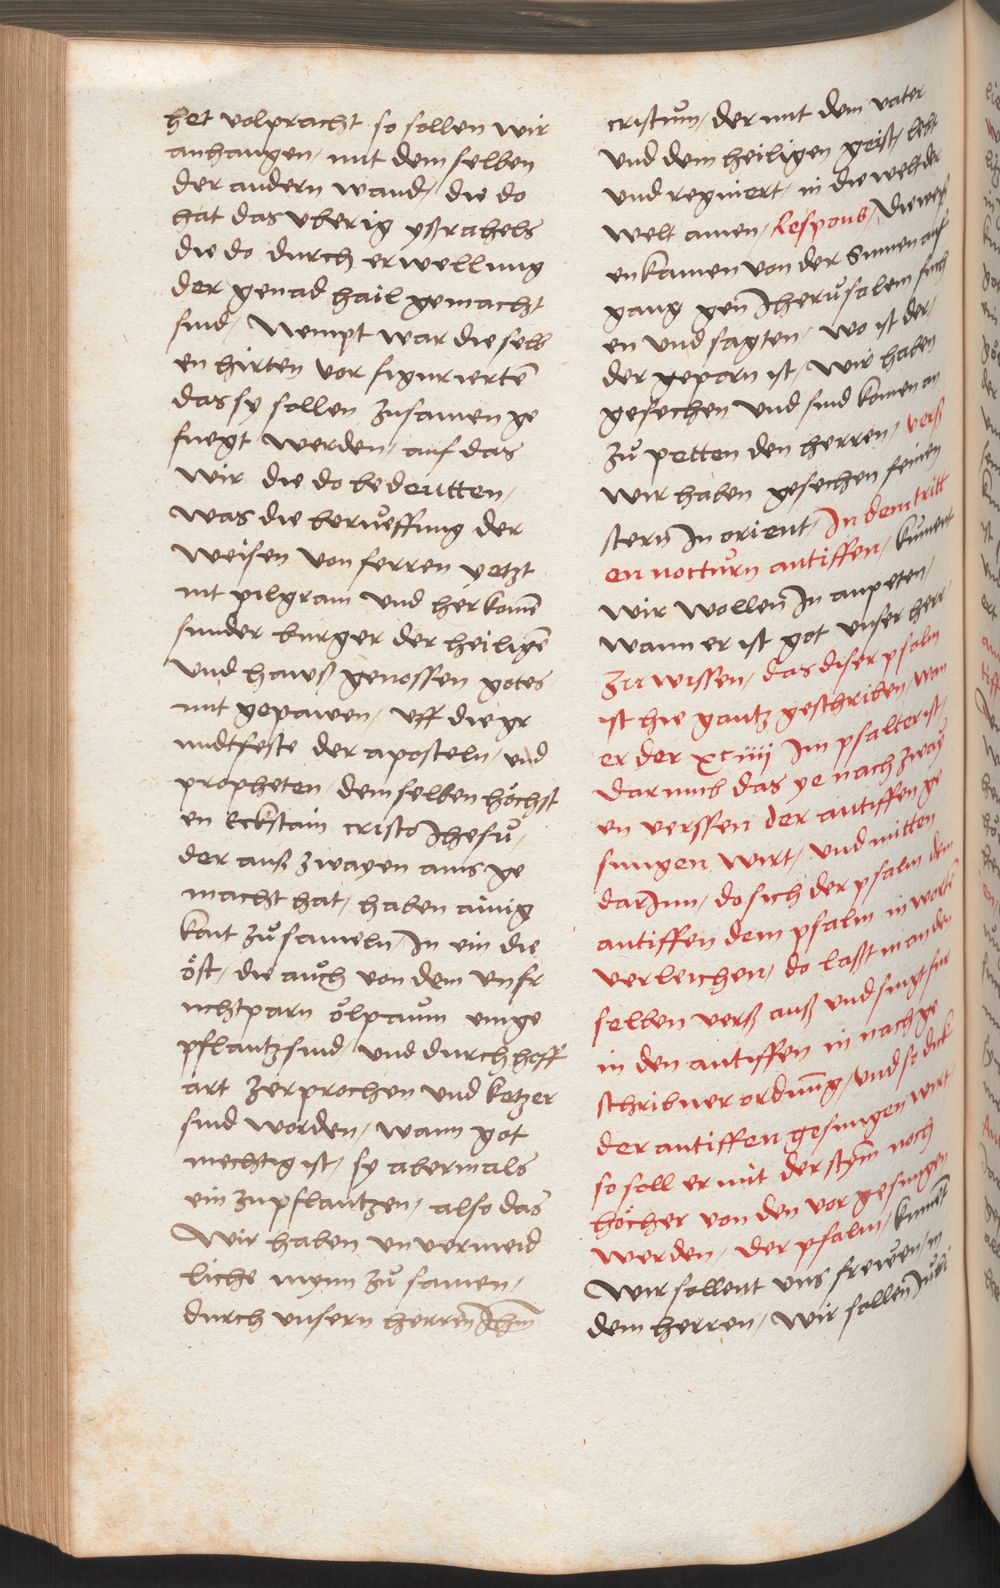 het volpracht so sollen wir
anhangen / mit dem selben
der andern wand / die do
hat das vberig ysrahels
die do durch erwellung
der genad hail gemacht
sind / Nempt war die selb
en hirten vor figurierten̄
das sy sollen zusamen ge
fuegt werden / auf das
wir die do bedeutten /
was die berueffung der
weisen von ferren yetzt
nit pilgram vnd her komē
sunder burger der heiligē
vnd hawß genossen gotes
mit gepawen / vff die gr
undtfeste der aposteln / vnd
propheten / dem selben höchst
en eckstain cristo Ihesů /
der auß zwayen ains ge
macht hat / haben ainig
kait zů sameln / In ein die
öst / die aůch von dem vnfr
uchtparn ölpaům einge
pflantzt sind / vnd durch hoff
art zerprochen vnd ketzer
sind worden / wann got
mechtig ist / sy abermals
ein zupflantzen / also das
Wir haben vnvermeid
liche mynn zů samen /
durch vnsern herren Ihm̄
cristům / der mit dem vater
vnd dem heiligen geist / lebt
vnd regniert / in die welt der
welt amen / Respons / Die weyß
en kamen von der Sunnen auf
gang gen Iherůsalem such
en vnd sagten / wo ist der /
der geparn ist / wir haben
gesechen vnd sind komen an
zů petten den herren / verß
wir haben gesechen seinen
stern In orient / In dem tritt
en noctůrn antiffen / kument
wir wollen In anpeten /
wann er ist got vnser herr
Zu wissen / das diser psalm
ist hie gantz geschriben / wan
er der xciiij Im psalter ist /
dar umb das ye nach zway
en verssen der antiffen ge
sungen wirt / vnd mitten
dar Inn / do sich der psalm dem
antiffen dem psalm in wortē
verleichen / do laßt man den
selben verß auß vnd singt fur
in den antiffen in nach ge
schribner ordnūng / vnd so dick
der antiffen gesungen wirt /
so soll er mit der stym̄ noch
höcher von den vor gesungen
werden / der psalm / kument
Wir sollent vns frewen / in
dem herren / wir sollen Iůbi